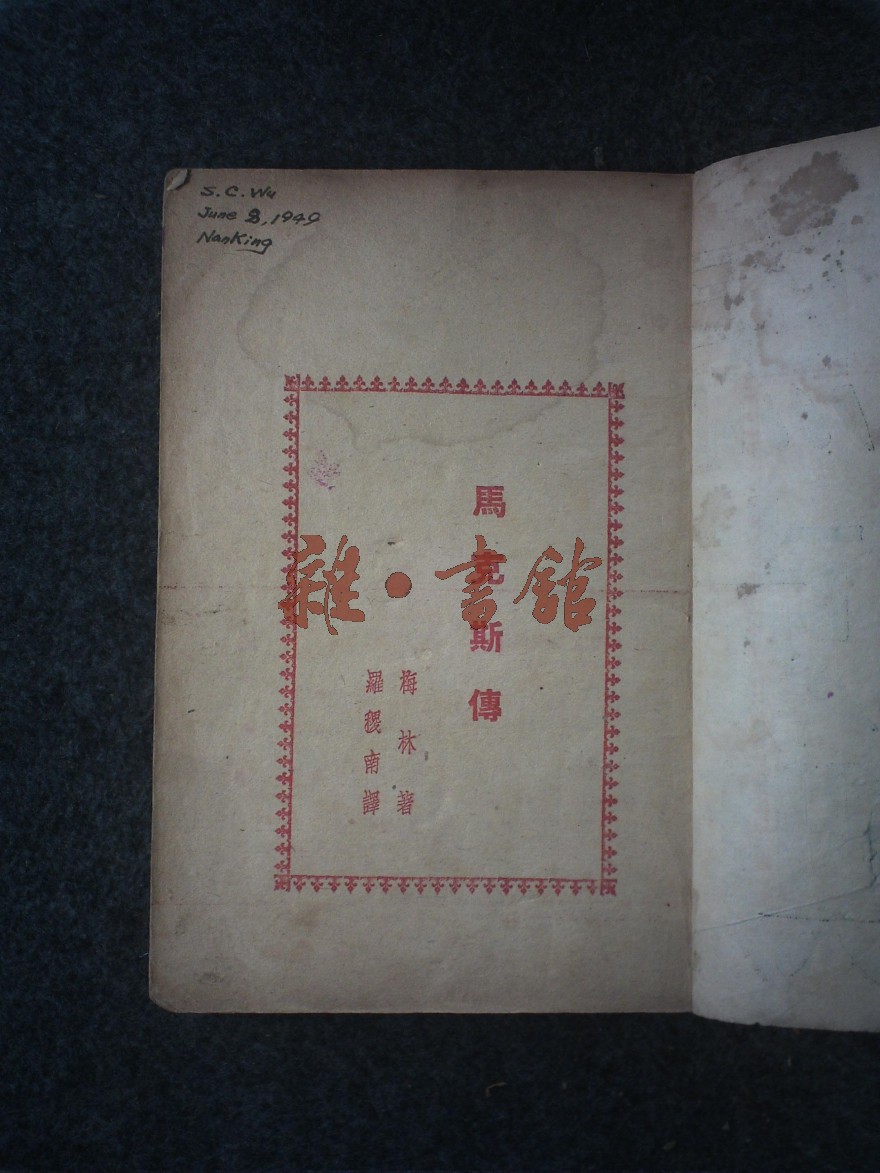 S. C. Wu
June 8, 1949
NanKing
馬克斯傳
梅林著
羅稷南譯
雜·書館